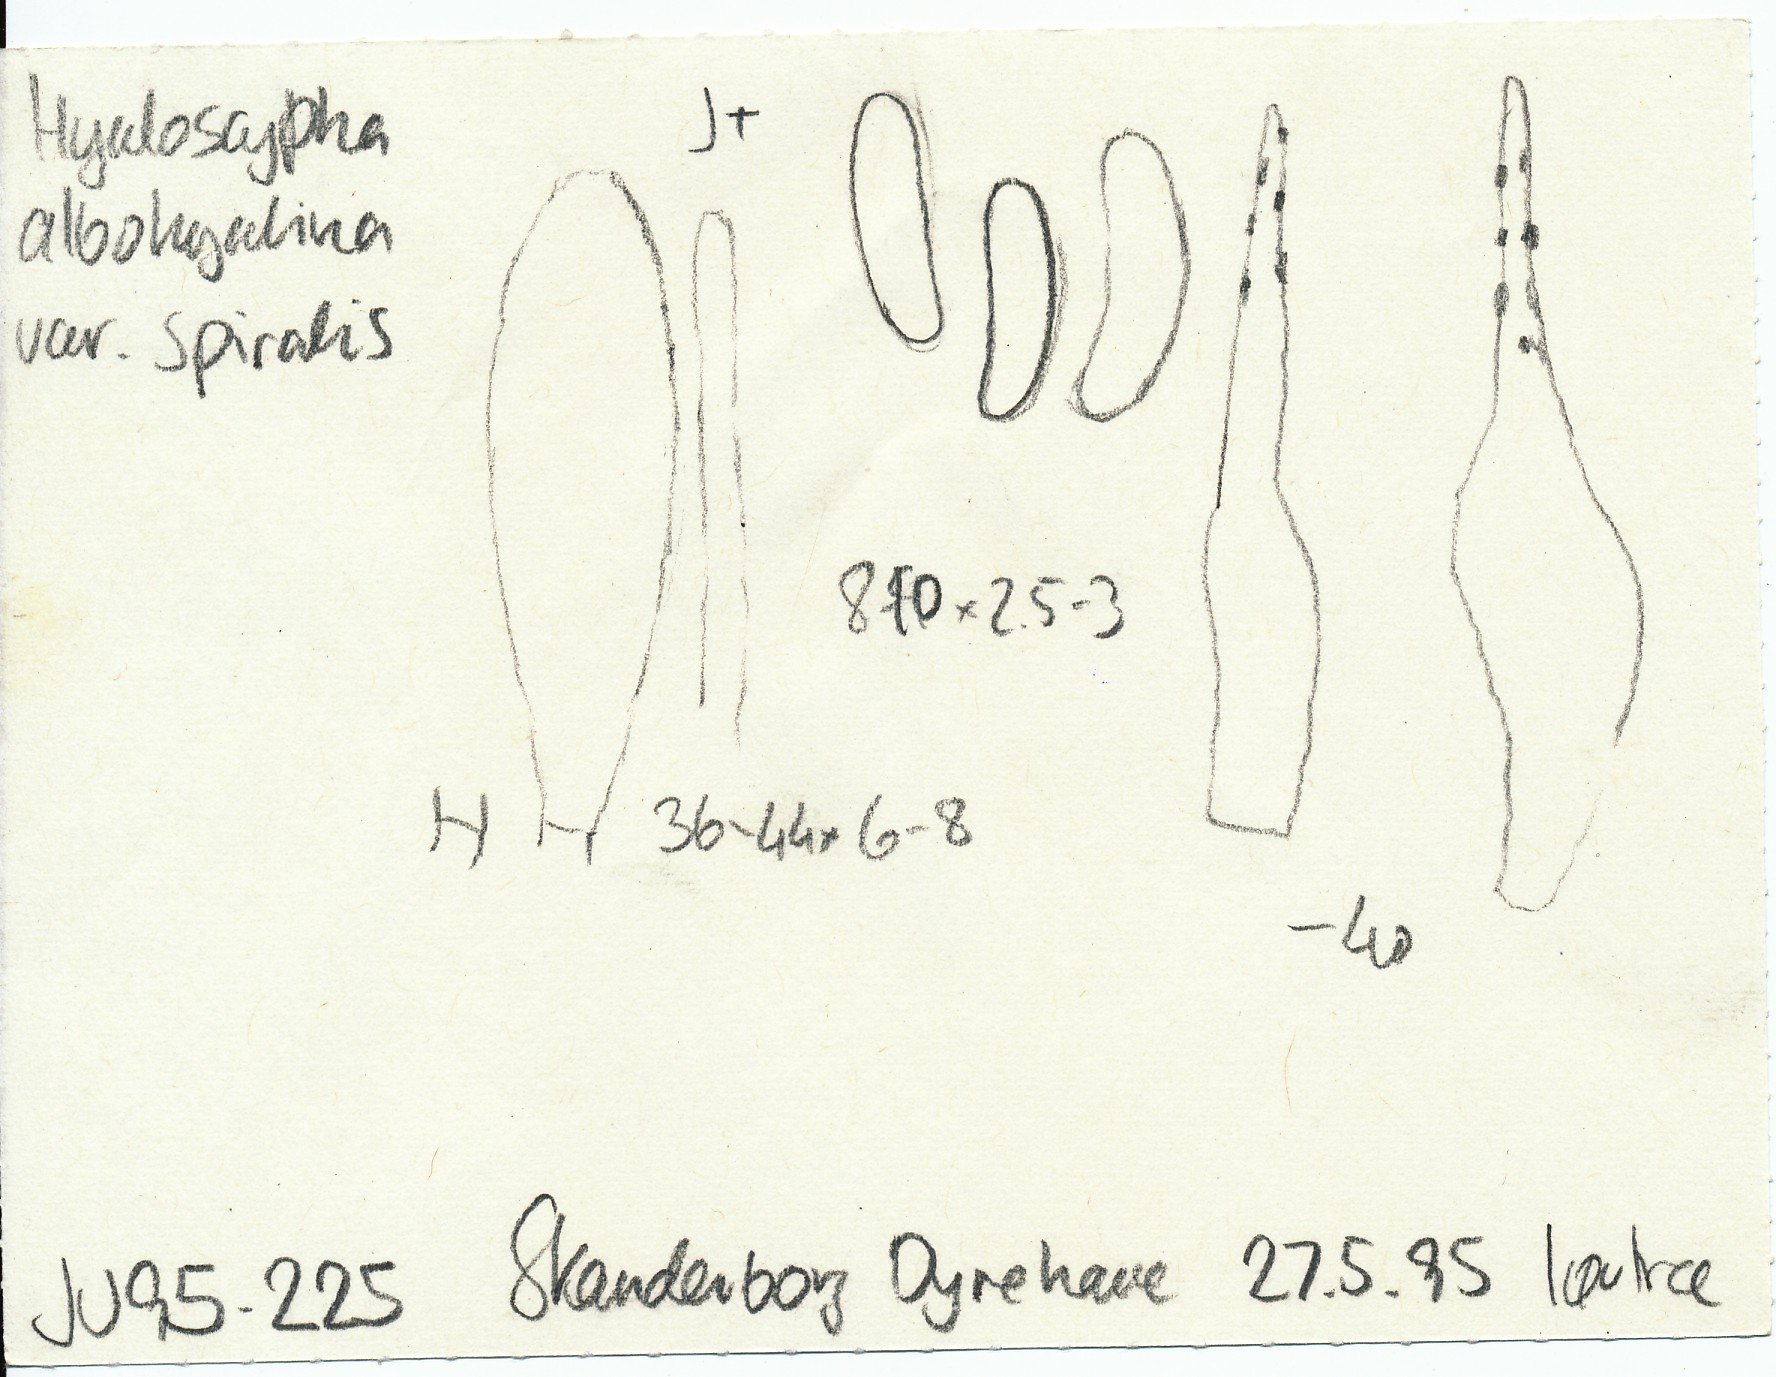 Hyaloscypha
albohyalina
var. spiralis
J+
8-10 × 2.5-3
H H 36-44 × 6-8
-40
JV95-225 Skanderborg Dyrehave 27.5.95 løvtræ